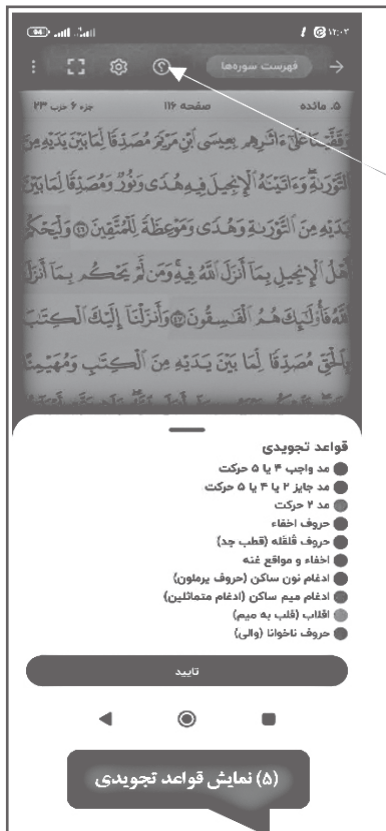 ۱۲:۰۳
94
فهرست سوره‌ها
۵. مائده
صفحه ۱۱۶
جزء ۶ حزب ۲۳
وَقَفَّيْنَا عَلَىٰٓ ءَاثَٰرِهِم بِعِيسَى ٱبْنِ مَرْيَمَ مُصَدِّقًا لِّمَا بَيْنَ يَدَيْهِ مِنَ
ٱلتَّوْرَىٰةِ وَءَاتَيْنَٰهُ ٱلْإِنجِيلَ فِيهِ هُدًى وَنُورٌ وَمُصَدِّقًا لِّمَا بَيْنَ
يَدَيْهِ مِنَ ٱلتَّوْرَىٰةِ وَهُدًى وَمَوْعِظَةً لِّلْمُتَّقِينَ ٤٦ وَلْيَحْكُمْ
أَهْلُ ٱلْإِنجِيلِ بِمَآ أَنزَلَ ٱللَّهُ فِيهِ وَمَن لَّمْ يَحْكُم بِمَآ أَنزَلَ
ٱللَّهُ فَأُو۟لَٰٓئِكَ هُمُ ٱلْفَٰسِقُونَ ٤٧ وَأَنزَلْنَآ إِلَيْكَ ٱلْكِتَٰبَ
بِٱلْحَقِّ مُصَدِّقًا لِّمَا بَيْنَ يَدَيْهِ مِنَ ٱلْكِتَٰبِ وَمُهَيْمِنًا
قواعد تجویدی
مد واجب ۴ یا ۵ حرکت
مد جایز ۲ یا ۴ یا ۵ حرکت
مد ۲ حرکت
حروف اخفاء
حروف قَلقَله (قطب جد)
اخفاء و مواقع غنه
ادغام نون ساکن (حروف یرملون)
ادغام میم ساکن (ادغام متماثلین)
اقلاب (قلب به میم)
حروف ناخوانا (والی)
تایید
(۵) نمایش قواعد تجویدی